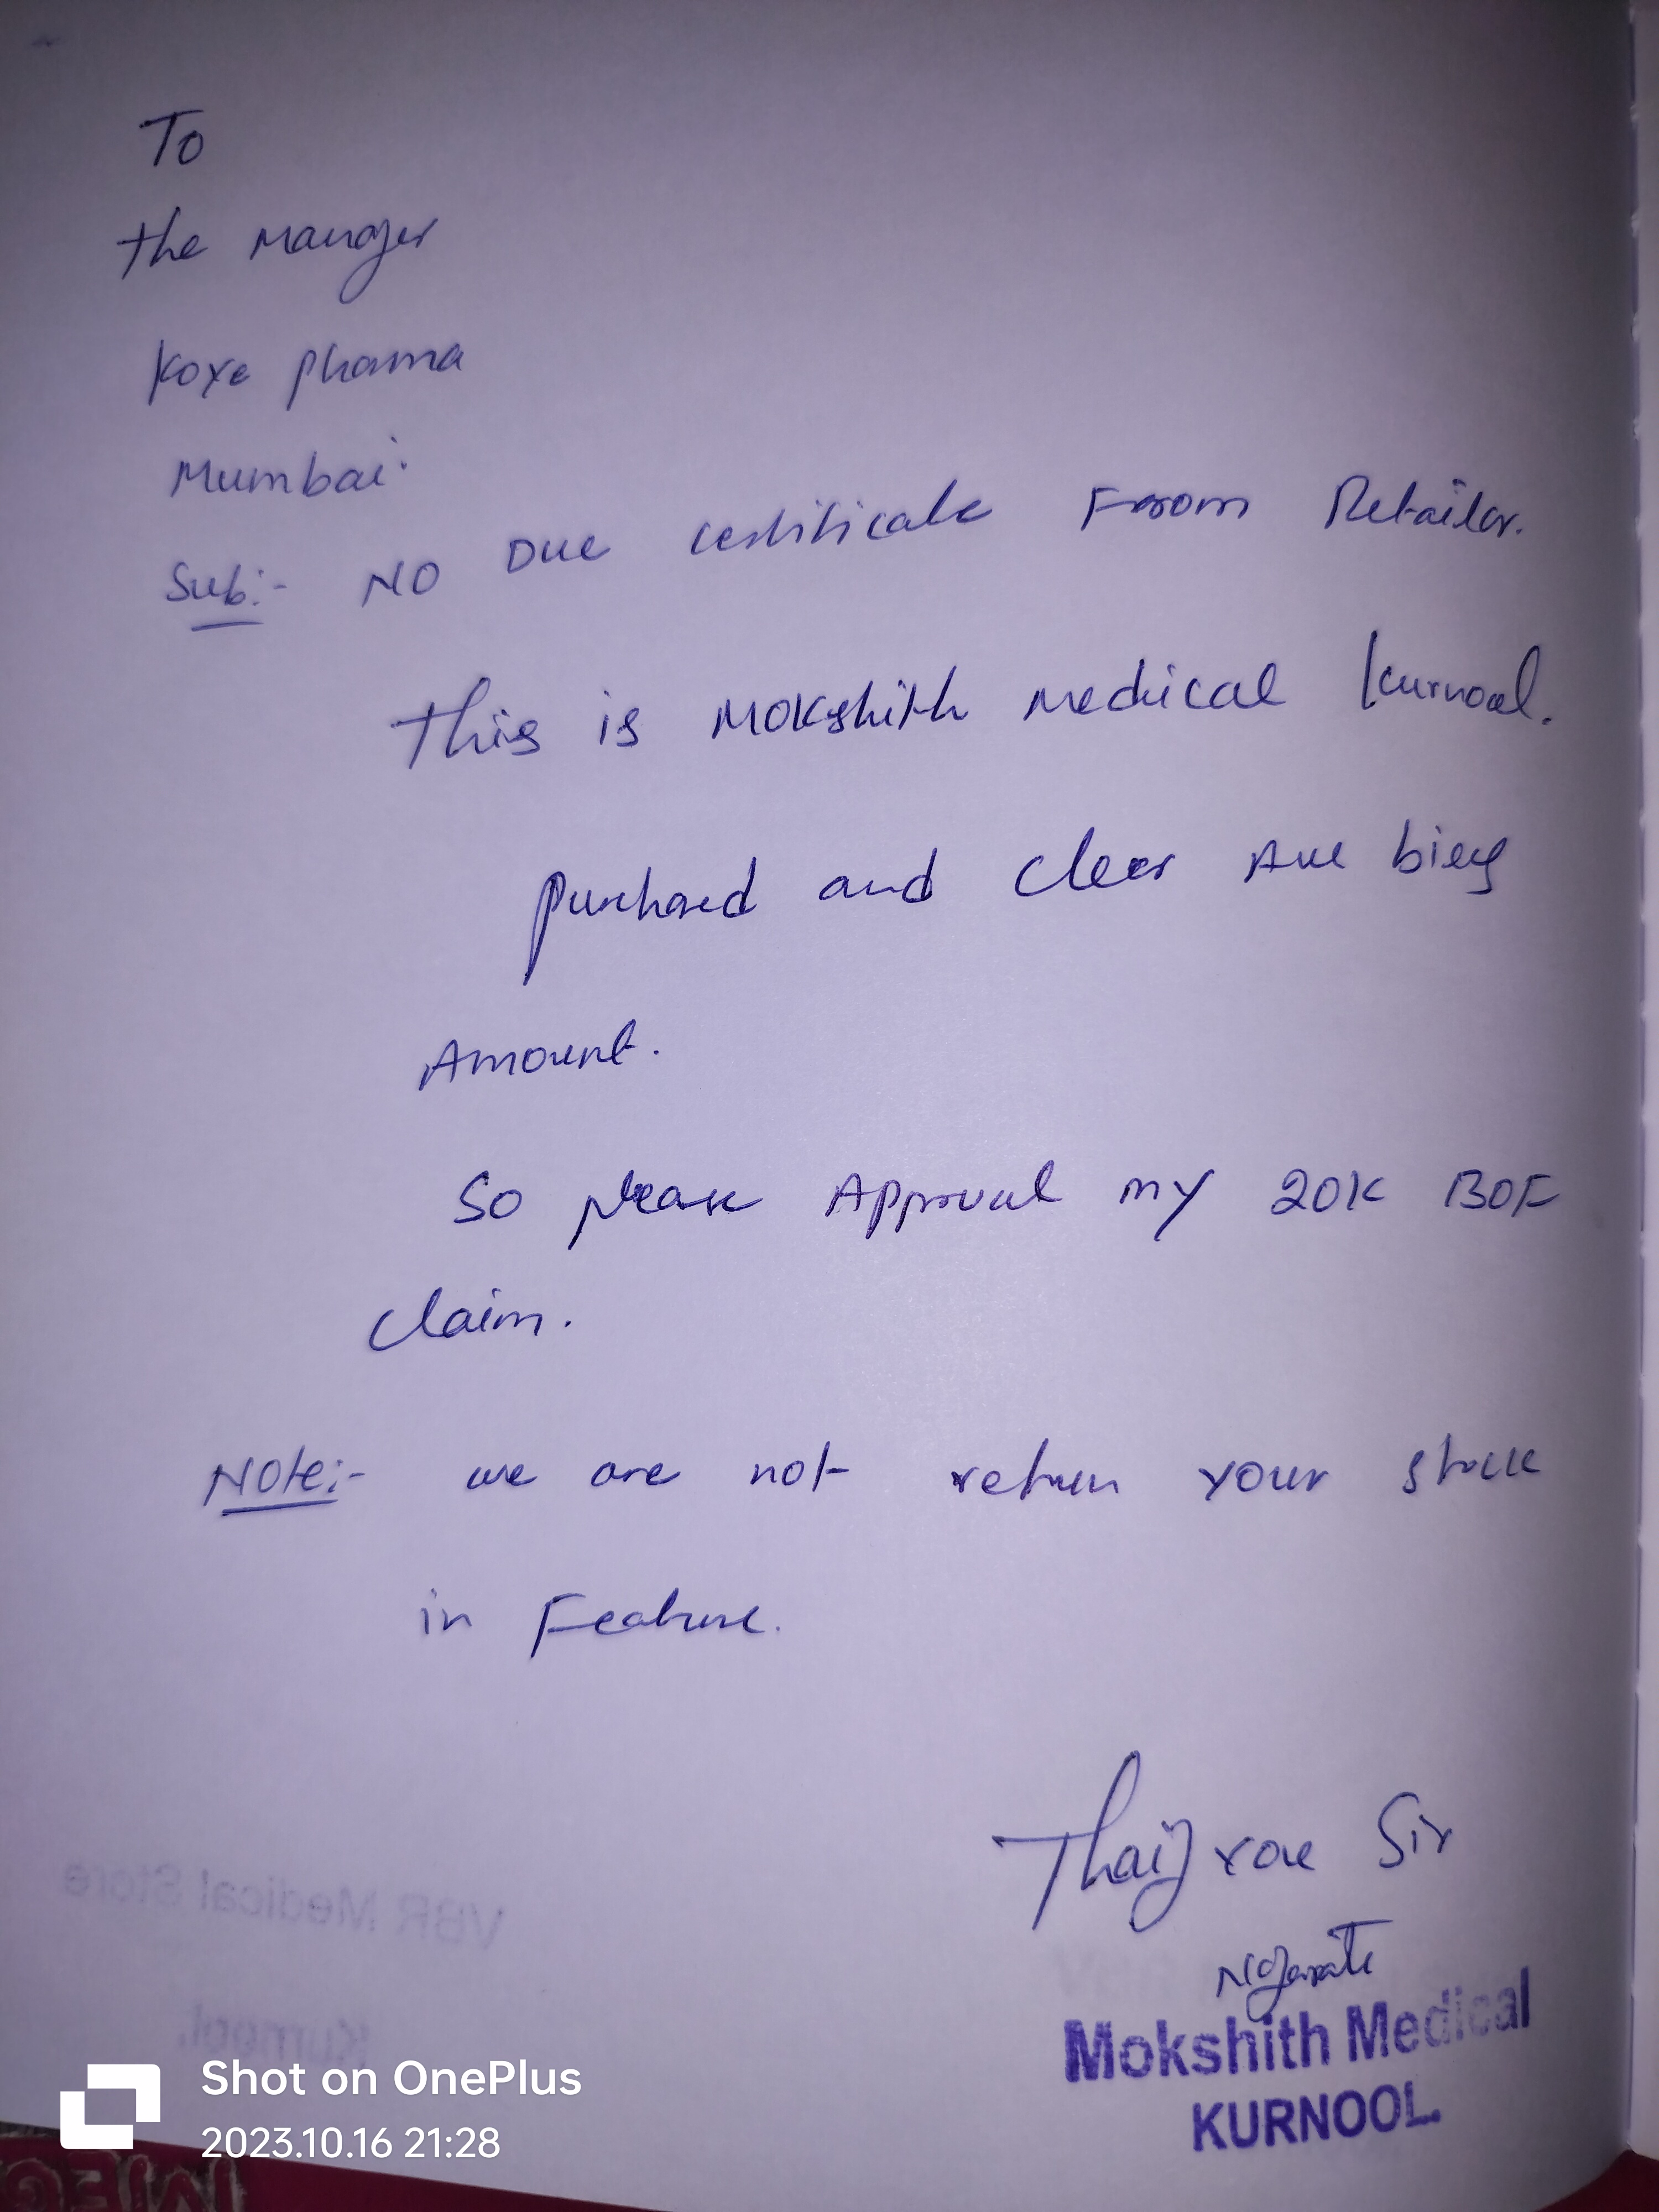 To
the Manger
Koye pharma
Mumbai.
Sub:- NO Due certificate From Retailer.
This is Mokshith Medical Kurnool.
purchased and Clear All
Amount.
So please Approval my 20K BOF
claim.
Note:- we are not return your stock
in Feature.
Sir
Mokshith Medical
KURNOOL.
VBR Medical Store
Kurnool.
Shot on OnePlus
2023.10.16 21:28